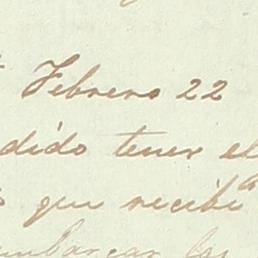 Febrero 22
dido tener el
que recibi
embarcar los